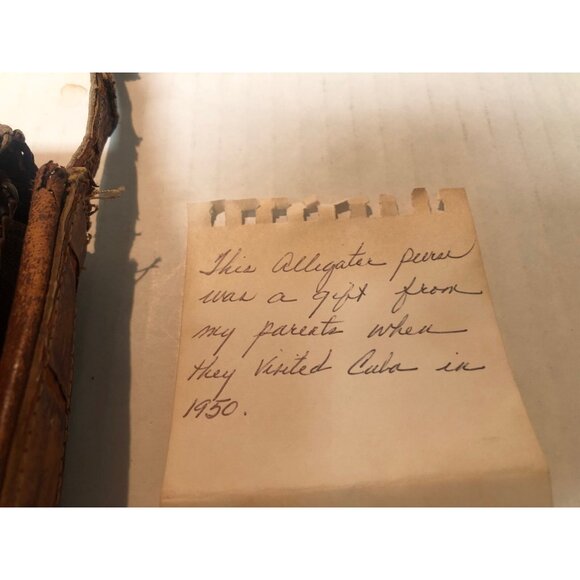 This Alligator purse
was a gift from
my parents when
they visited Cuba in
1950.